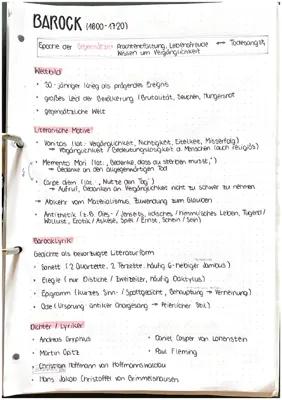 BAROCK (1600-1720)
Epoche der Gegensätze: Prachtentfaltung, Lebensfreude ↔ Todesangst,
Wissen um Vergänglichkeit
Weltbild
• 30-jähriger Krieg als prägendes Ereignis
• großes Leid der Bevölkerung (Brutalität, Seuchen, Hungersnot)
• gegensätzliche Welt
Literarische Motive
• Vanitas (lat. Vergänglichkeit, Nichtigkeit, Eitelkeit, Misserfolg)
→ Vergänglichkeit / Bedeutungslosigkeit d. Menschen (auch religiös)
• Memento Mori (lat. "Gedenke, dass du sterben musst")
→ Gedanke an den allgegenwärtigen Tod
• Carpe diem (lat. "Nutze den Tag")
→ Aufruf, Gedanken an Vergänglichkeit nicht zu schwer zu nehmen
→ Abkehr vom Materialismus, Zuwendung zum Glauben
• Antithetik (z.B. Dies- / Jenseits, irdisches / himmlisches Leben, Tugend /
Wollust, Erotik / Askese, Spiel / Ernst, Schein / Sein)
Barocklyrik
Gedichte als bevorzugte Literaturform
• Sonett (2 Quartette, 2 Terzette, häufig 6-hebiger Jambus)
• Elegie (nur Distiche / Zweizeiler, häufig Daktylus)
• Epigramm (kurzes Sinn- / Spottgedicht, Behauptung → Verneinung)
• Ode (Ursprung antiker Chorgesang → feierlicher Stil)
Dichter / Lyriker
• Andreas Gryphius • Daniel Casper von Lohenstein
• Martin Opitz • Paul Fleming
• Christian Hoffmann von Hoffmannswaldau
• Hans Jakob Christoffel von Grimmelshausen